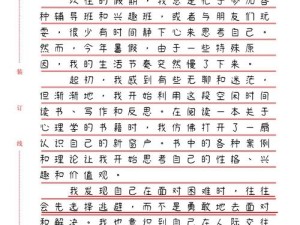 以往的假期，我总是忙于参加各
种辅导班和兴趣班，或者与朋友们玩
耍，很少有时间静下心来思考自己。
然而，今年暑假，由于一些特殊原
因，我的生活节奏突然慢了下来。
起初，我感到有些无聊和迷茫，
但渐渐地，我开始利用这段空闲时间
读书、写作和反思。在阅读一本关于
心理学的书籍时，我仿佛打开了一扇
认识自己的新窗户。书中的各种案例
和理论让我开始思考自己的性格、兴
趣和价值观。
我发现自己在面对困难时，往往
会先选择逃避，而不是勇敢地去面对
和解决。我也意识到自己在人际交往
装
订
线